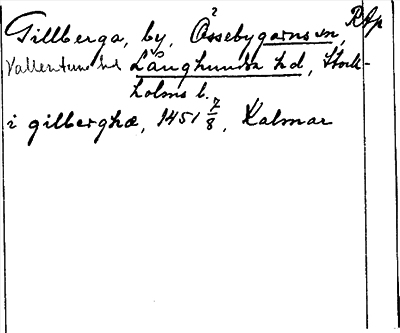 Gillberga, by, Össebygarns sn, RAp
Vallentuna hd Långhundra hd, Stock-
holms l.
i gilberghæ, 1451 7/8, Kalmar